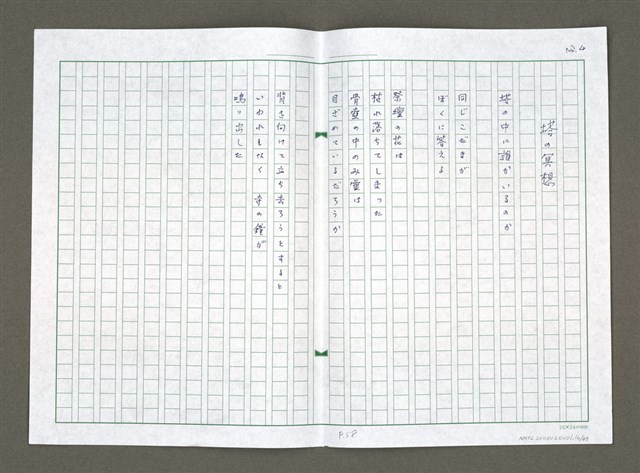 No. 4
塔の冥想
塔の中に誰がいるのか
同じこだまが
ぼくに答える
祭壇の花は
枯れ落ちてしまった
骨壷の中のみ霊は
目ざめているだろうか
背を向けて立ち去ろうとすると
いわれもなく 寺の鐘が
鳴り出した
P.58